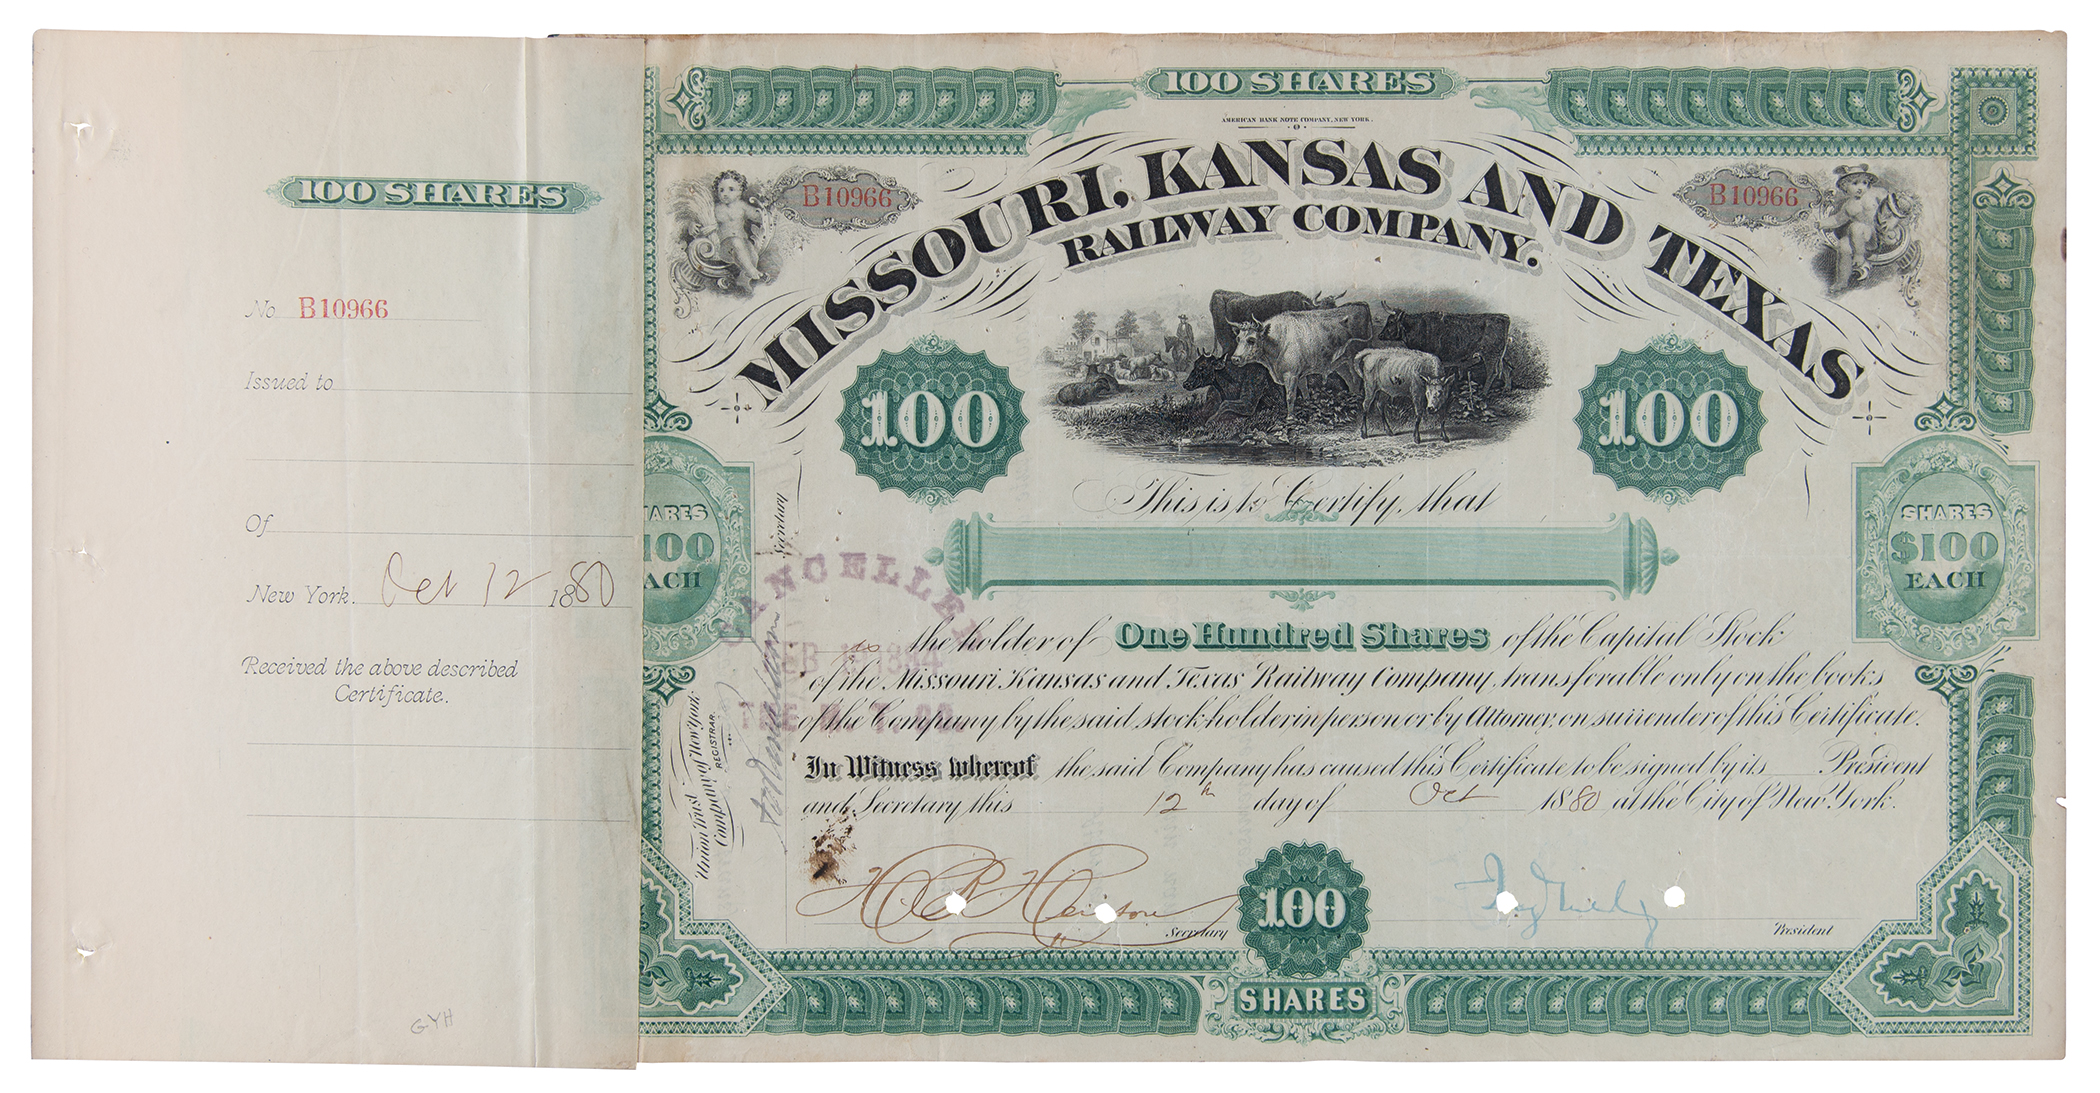 100 SHARES
No B10966
Issued to
Of
New York. Oct 12 1880
Received the above described
Certificate.
GYH
100 SHARES
AMERICAN BANK NOTE COMPANY, NEW YORK.
B10966
B10966
MISSOURI, KANSAS AND TEXAS
RAILWAY COMPANY.
100
100
This is to Certify, that
ARES
100
ACH
SHARES
$100
EACH
Secretary
CANCELLED
FEB
Union Trust
Company of New York
REGISTRAR.
the holder of One Hundred Shares of the Capital Stock
of the Missouri Kansas and Texas Railway Company, transferable only on the books
of the Company by the said stockholder in person or by Attorney, on surrender of this Certificate.
In Witness whereof the said Company has caused this Certificate to be signed by its President
and Secretary this 12th day of Oct 1880 at the City of New York.
Secretary
100
SHARES
President